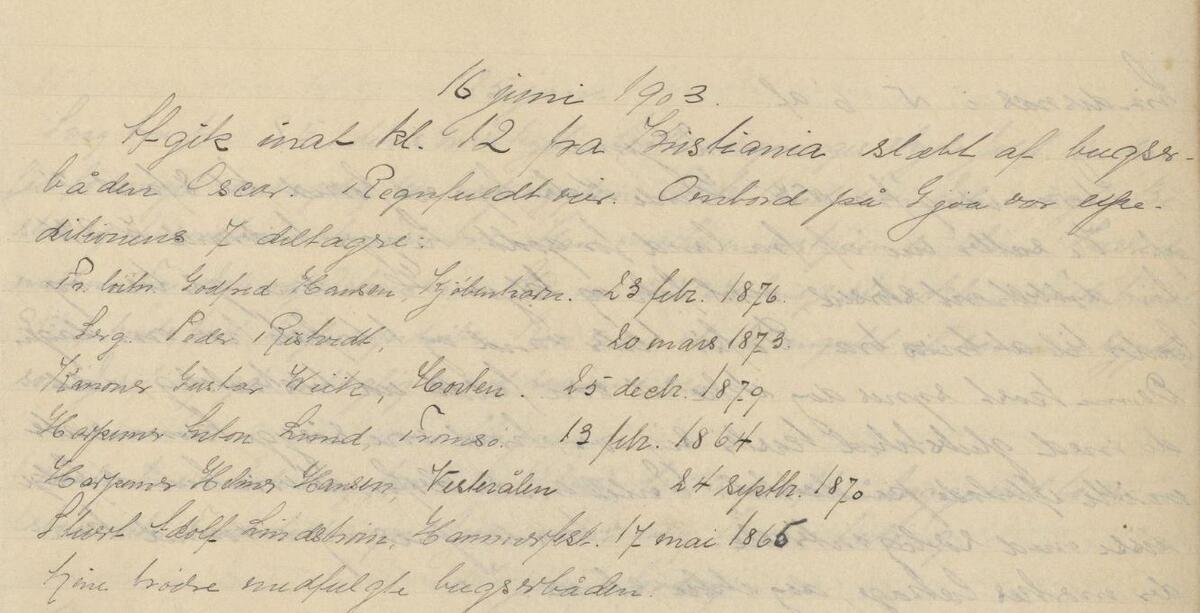 16 juni 1903.
Afgik inat kl. 12 fra Kristiania slæbt af bugser-
båden Oscar. Regnfuldt vær. Ombord på Gjøa var expe-
ditionens 7 deltagre:
Pr. løitn. Godfred Hansen, Kjøbenhavn. 23 febr. 1876.
Serg. Peder Ristvedt, 20 mars 1873.
Kanoner Gustav Wiik, Horten. 25 decbr. 1879
Harpuner Anton Lund, Tromsø. 13 febr. 1864
Harpuner Helmer Hansen, Vesterålen 24 septbr. 1870
Stuert Adolf Lindstrøm, Hammerfest. 17 mai 1865
Mine brødre medfulgte bugserbåden.